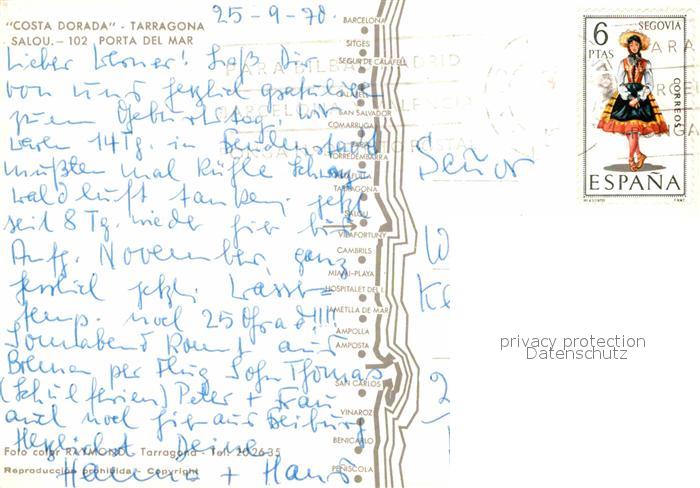 25-9-70.
"COSTA DORADA" - TARRAGONA
SALOU. - 102 PORTA DEL MAR
Lieber Werner! Laß Dir
von uns herzlich gratulieren
zum Geburtstag. Wir
waren 14 Tg. in Freudenstadt
mußten mal kühle Schwarz
waldluft tanken, jetzt
seit 8 Tg. wieder hier bis
Anfg. November, ganz
herrlich jetzt. Wasser=
temp. noch 25 Grad!!!!
Sonnabend kommt aus
Bremen per Flug Sohn Thomas
(Schulferien) Peter + Frau
auch noch hier aus Freiburg
Herzlichst Deine
Hanna + Hans
Foto color RAYMOND Tarragona - Tel. 202635
Reproducción prohibida - Copyright
BARCELONA
SITGES
SEGUR DE CALAFELL
SAN SALVADOR
COMARRUGA
TORREDEMBARRA
TAMARIT
TARRAGONA
SALOU
VILAFORTUNY
CAMBRILS
MIAMI-PLAYA
HOSPITALET DEL I.
AMETLLA DE MAR
AMPOLLA
AMPOSTA
SAN CARLOS
VINAROZ
BENICARLO
PEÑISCOLA
PARA BILBAO MADRID
BARCELONA VALENCIA
PONGA DISTRITO POSTAL
Señor
6
PTAS
SEGOVIA
CORREOS
ESPAÑA
privacy protection
Datenschutz